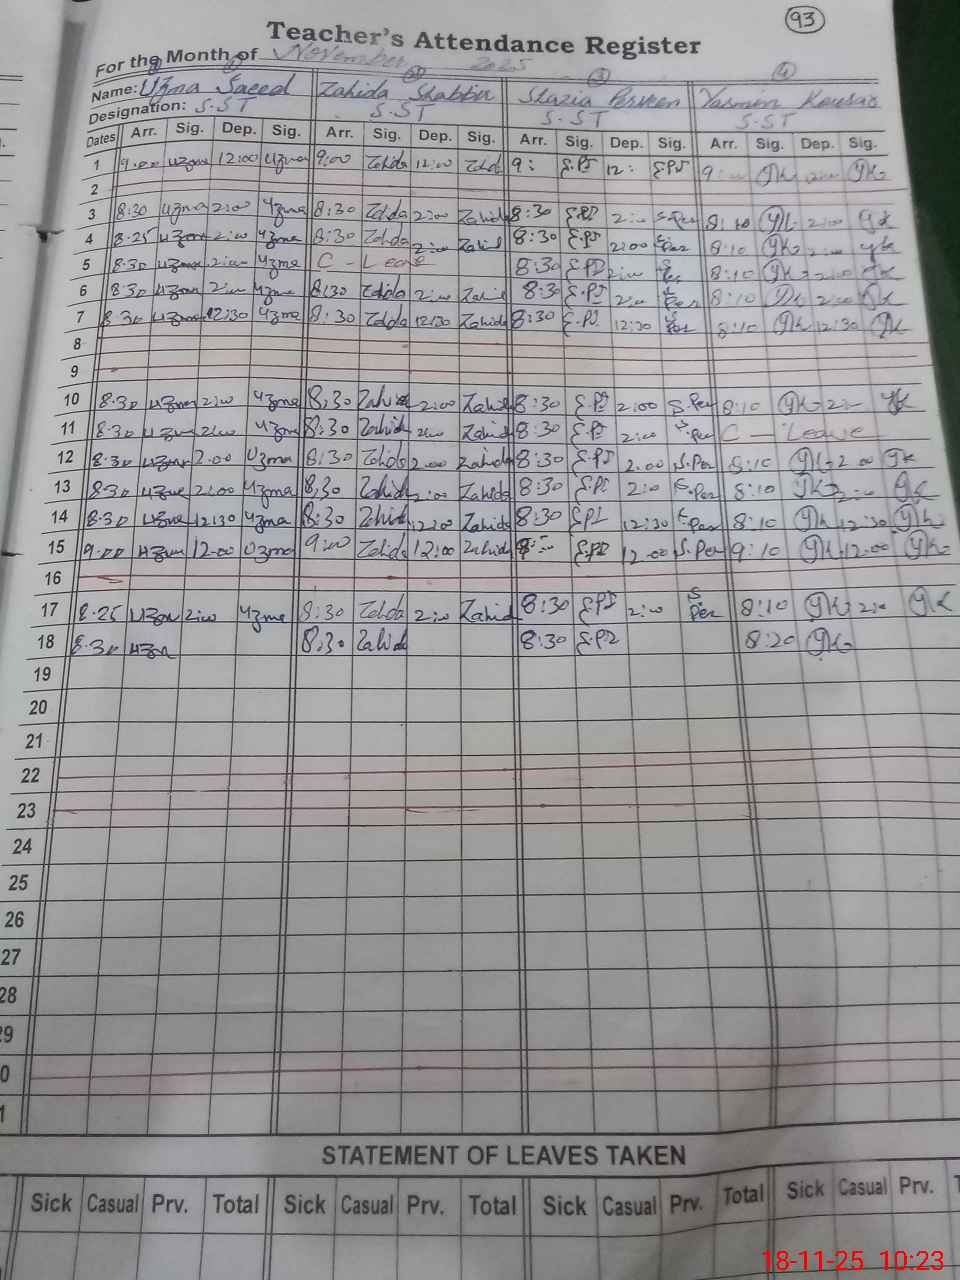 93
Teacher's Attendance Register
For the Month of November 2025
Name: Uzma Saeed Zahida Shabbir Shazia Perveen Yasmin Kousar
Designation: S.ST S.ST S.ST S.ST
Dates Arr. Sig. Dep. Sig. Arr. Sig. Dep. Sig. Arr. Sig. Dep. Sig. Arr. Sig. Dep. Sig.
1 9.00 Uzma 12:00 Uzma 9:00 Zahida 12:00 Zahid 9: S.PJ 12: S.PJ 9 YK YK
2
3 8:30 Uzma 2:00 Uzma 8:30 Zahida 2:00 Zahid 8:30 2:00 S.Per 8:10 YK 2:00 YK
4 8.25 Uzma 2:00 Uzma 8:30 Zahida 2:00 Zahid 8:30 2:00 S.Per 8:10 YK 2:00 YK
5 8:30 Uzma 2:00 Uzma C - Leave 8:30 2:00 S.Per 8:10 YK 2:00 YK
6 8:30 Uzma 2:00 Uzma 8:30 Zahida 2:00 Zahid 8:30 S.PJ 2:00 S.Per 8:10 YK 2:00 YK
7 8:30 Uzma 12:30 Uzma 8:30 Zahida 12:30 Zahida 8:30 S.PJ 12:30 S.Per 8:10 YK 12:30 YK
8
9
10 8:30 Uzma 2:00 Uzma 8:30 Zahida 2:00 Zahid 8:30 S.PJ 2:00 S.Per 8:10 YK 2:00 YK
11 8:30 Uzma 2:00 Uzma 8:30 Zahid 2:00 Zahid 8:30 S.PJ 2:00 S.Per C - Leave
12 8:30 Uzma 2:00 Uzma 8:30 Zahida 2:00 Zahida 8:30 S.PJ 2:00 S.Per 8:10 YK 2:00 YK
13 8:30 Uzma 2:00 Uzma 8:30 Zahida 2:00 Zahida 8:30 S.PJ 2:00 S.Per 8:10 YK 2:00 YK
14 8:30 Uzma 12:30 Uzma 8:30 Zahid Zahida 8:30 SPJ 12:30 S.Per 8:10 YK 12:30 YK
15 9:00 Uzma 12:00 Uzma 9:00 Zahida 12:00 Zahida 12:00 S.Per 9:10 YK 12:00 YK
16
17 8:25 Uzma 2:00 Uzma 8:30 Zahida 2:00 Zahida 8:30 SPJ 2:00 S.Per 8:10 YK 2:00 YK
18 8:30 Uzma 8:30 Zahid 8:30 S.PJ 8:20 YK
19
20
21
22
23
24
25
26
27
28
29
0
1
STATEMENT OF LEAVES TAKEN
Sick Casual Prv. Total Sick Casual Prv. Total Sick Casual Prv. Total Sick Casual Prv. T
18-11-25 10:23